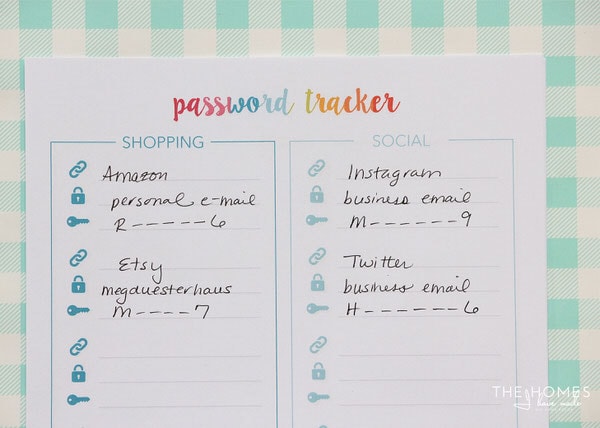 password tracker
SHOPPING
Amazon
personal e-mail
R-----6
Etsy
megduesterhaus
M----7
SOCIAL
Instagram
business email
M------9
Twitter
business email
H------6
THE HOMES
I have made